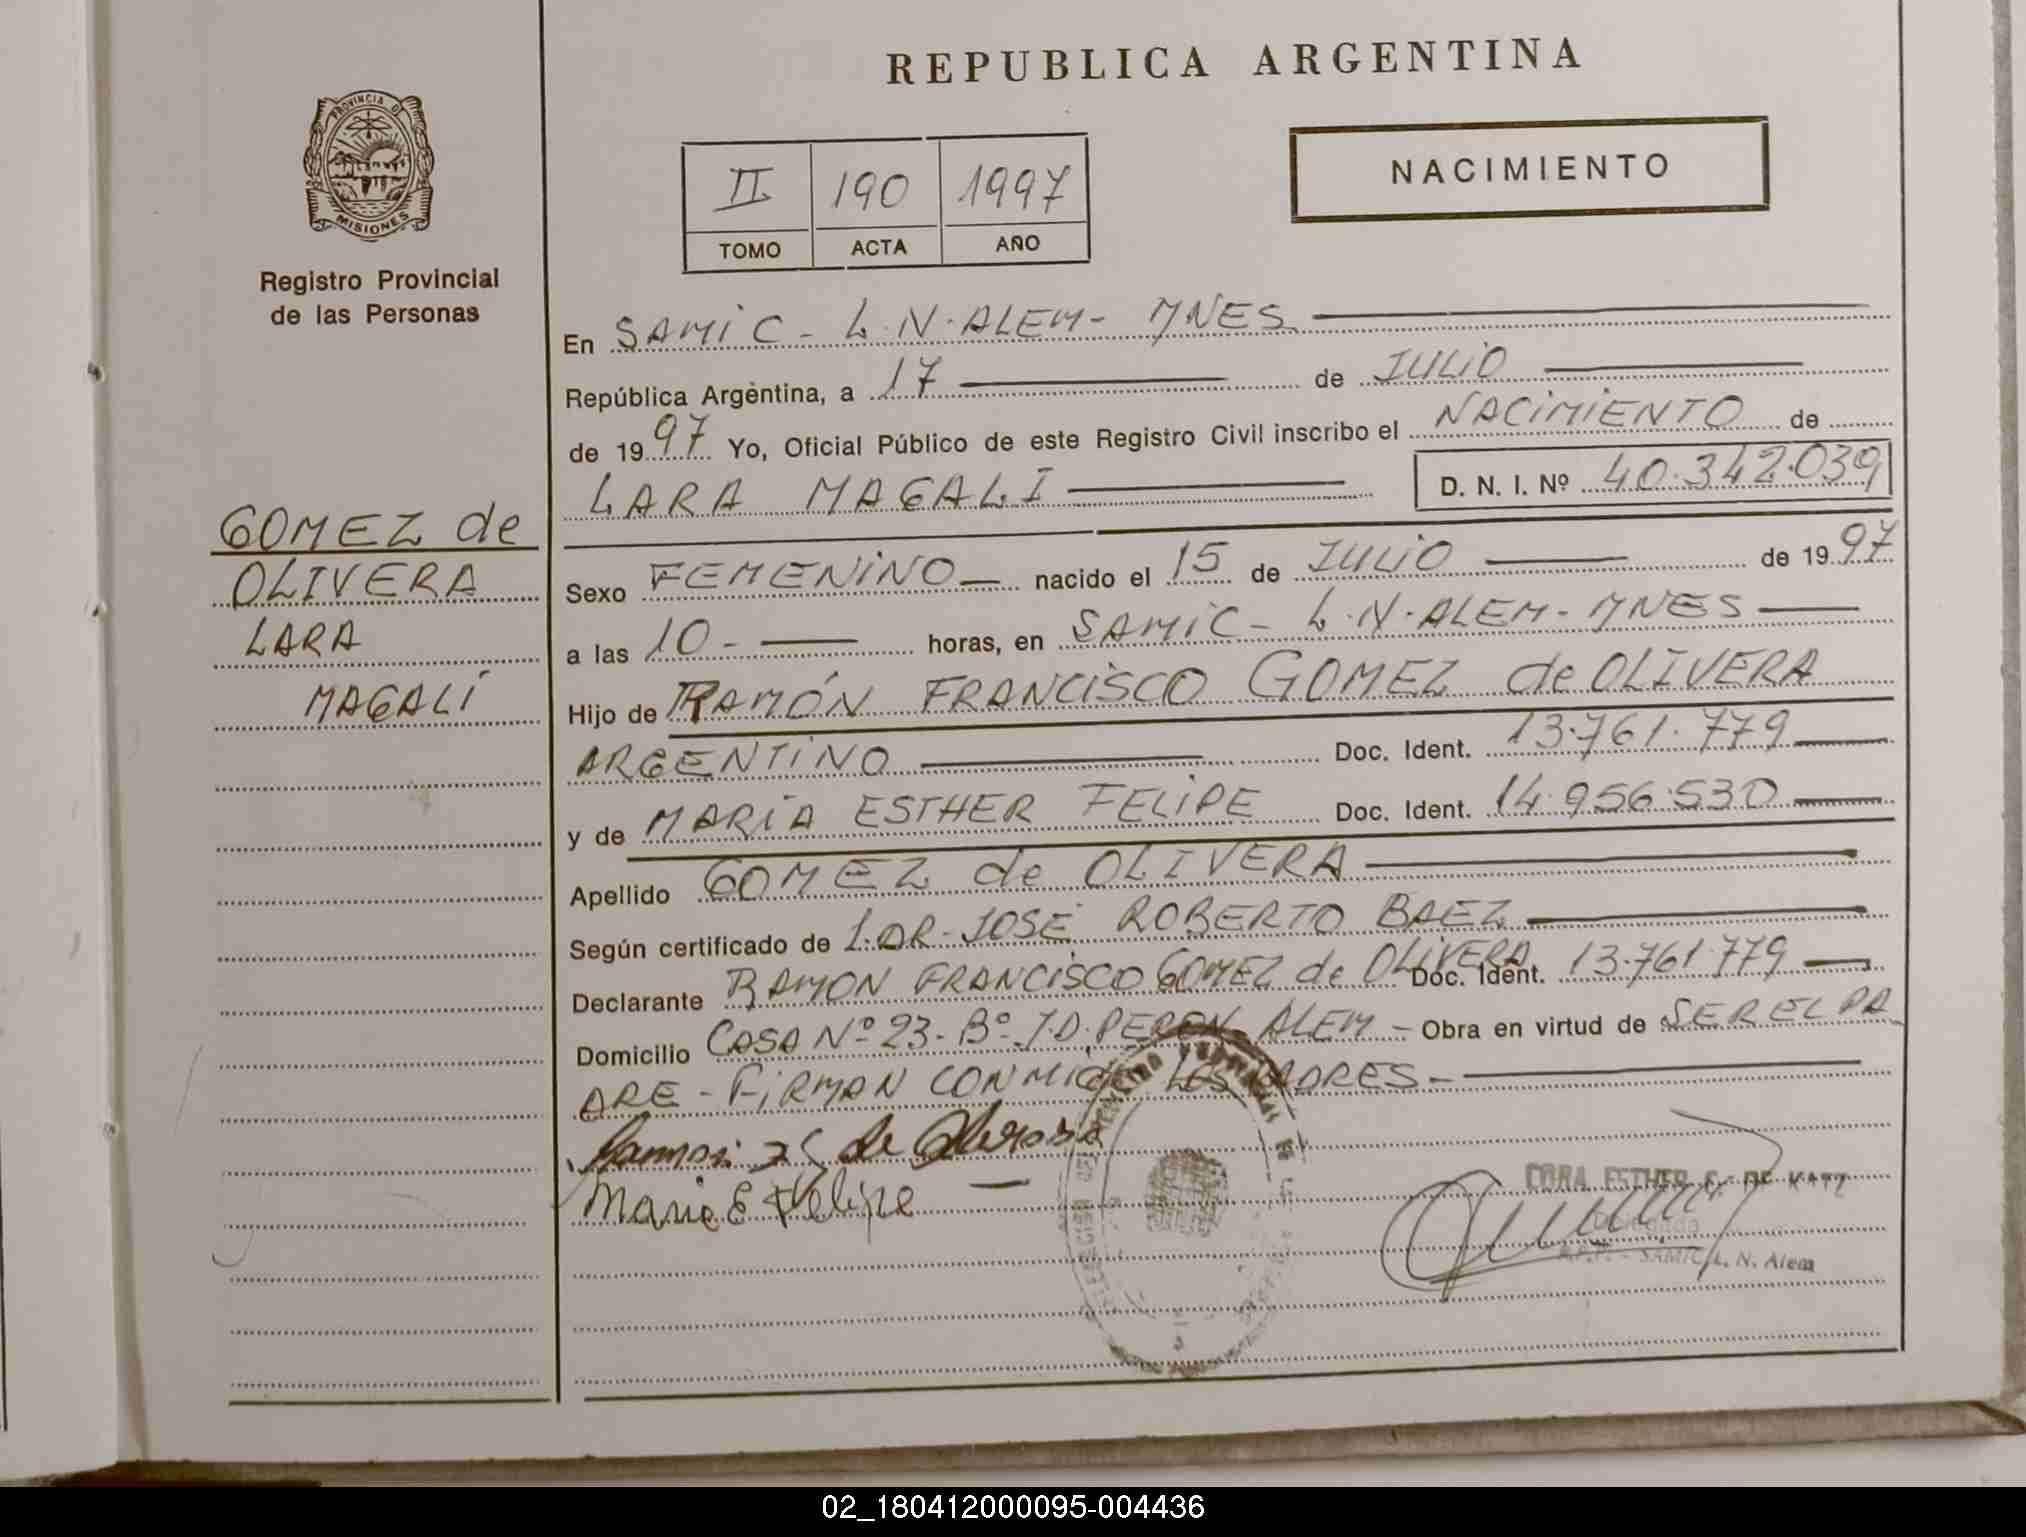 REPUBLICA ARGENTINA
PROVINCIA DE
MISIONES
Registro Provincial
de las Personas
II 190 1997
TOMO ACTA AÑO
NACIMIENTO
En SAMIC - L.N. ALEM - MNES
República Argentina, a 17 de JULIO
de 1997 Yo, Oficial Público de este Registro Civil inscribo el NACIMIENTO de
LARA MAGALI D. N. I. Nº 40.342.039
GOMEZ de
OLIVERA
LARA
MAGALI
Sexo FEMENINO nacido el 15 de JULIO de 1997
a las 10 - horas, en SAMIC - L.N. ALEM - MNES
Hijo de RAMÓN FRANCISCO GOMEZ de OLIVERA
ARGENTINO Doc. Ident. 13.761.779
y de MARIA ESTHER FELIPE Doc. Ident. 14.956.530
Apellido GOMEZ de OLIVERA
Según certificado de DR. JOSÉ ROBERTO BAEZ
Declarante RAMON FRANCISCO GOMEZ de OLIVERA Doc. Ident. 13.761.779
Domicilio CASA Nº 23 - Bº J.D. PERON ALEM - Obra en virtud de SER EL PA
DRE - FIRMAN CONMIGO LOS PADRES -
de Olivera
Maria E Felipe
CORA ESTHER G. DE KATZ
Delegada
SAMIC L. N. Alem
02_180412000095-004436